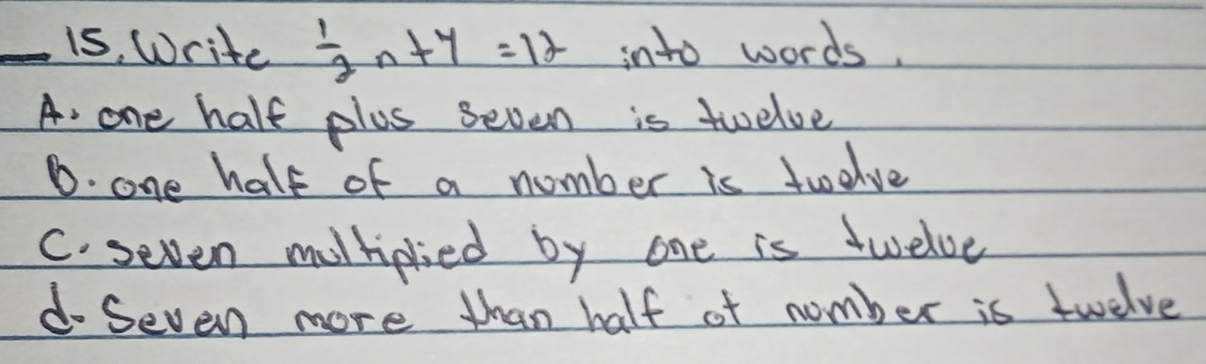 15. Write 1/2 n + 7 = 12 into words.
A. one half plus seven is twelve
b. one half of a number is twelve
C. seven multiplied by one is twelve
d. Seven more than half of number is twelve